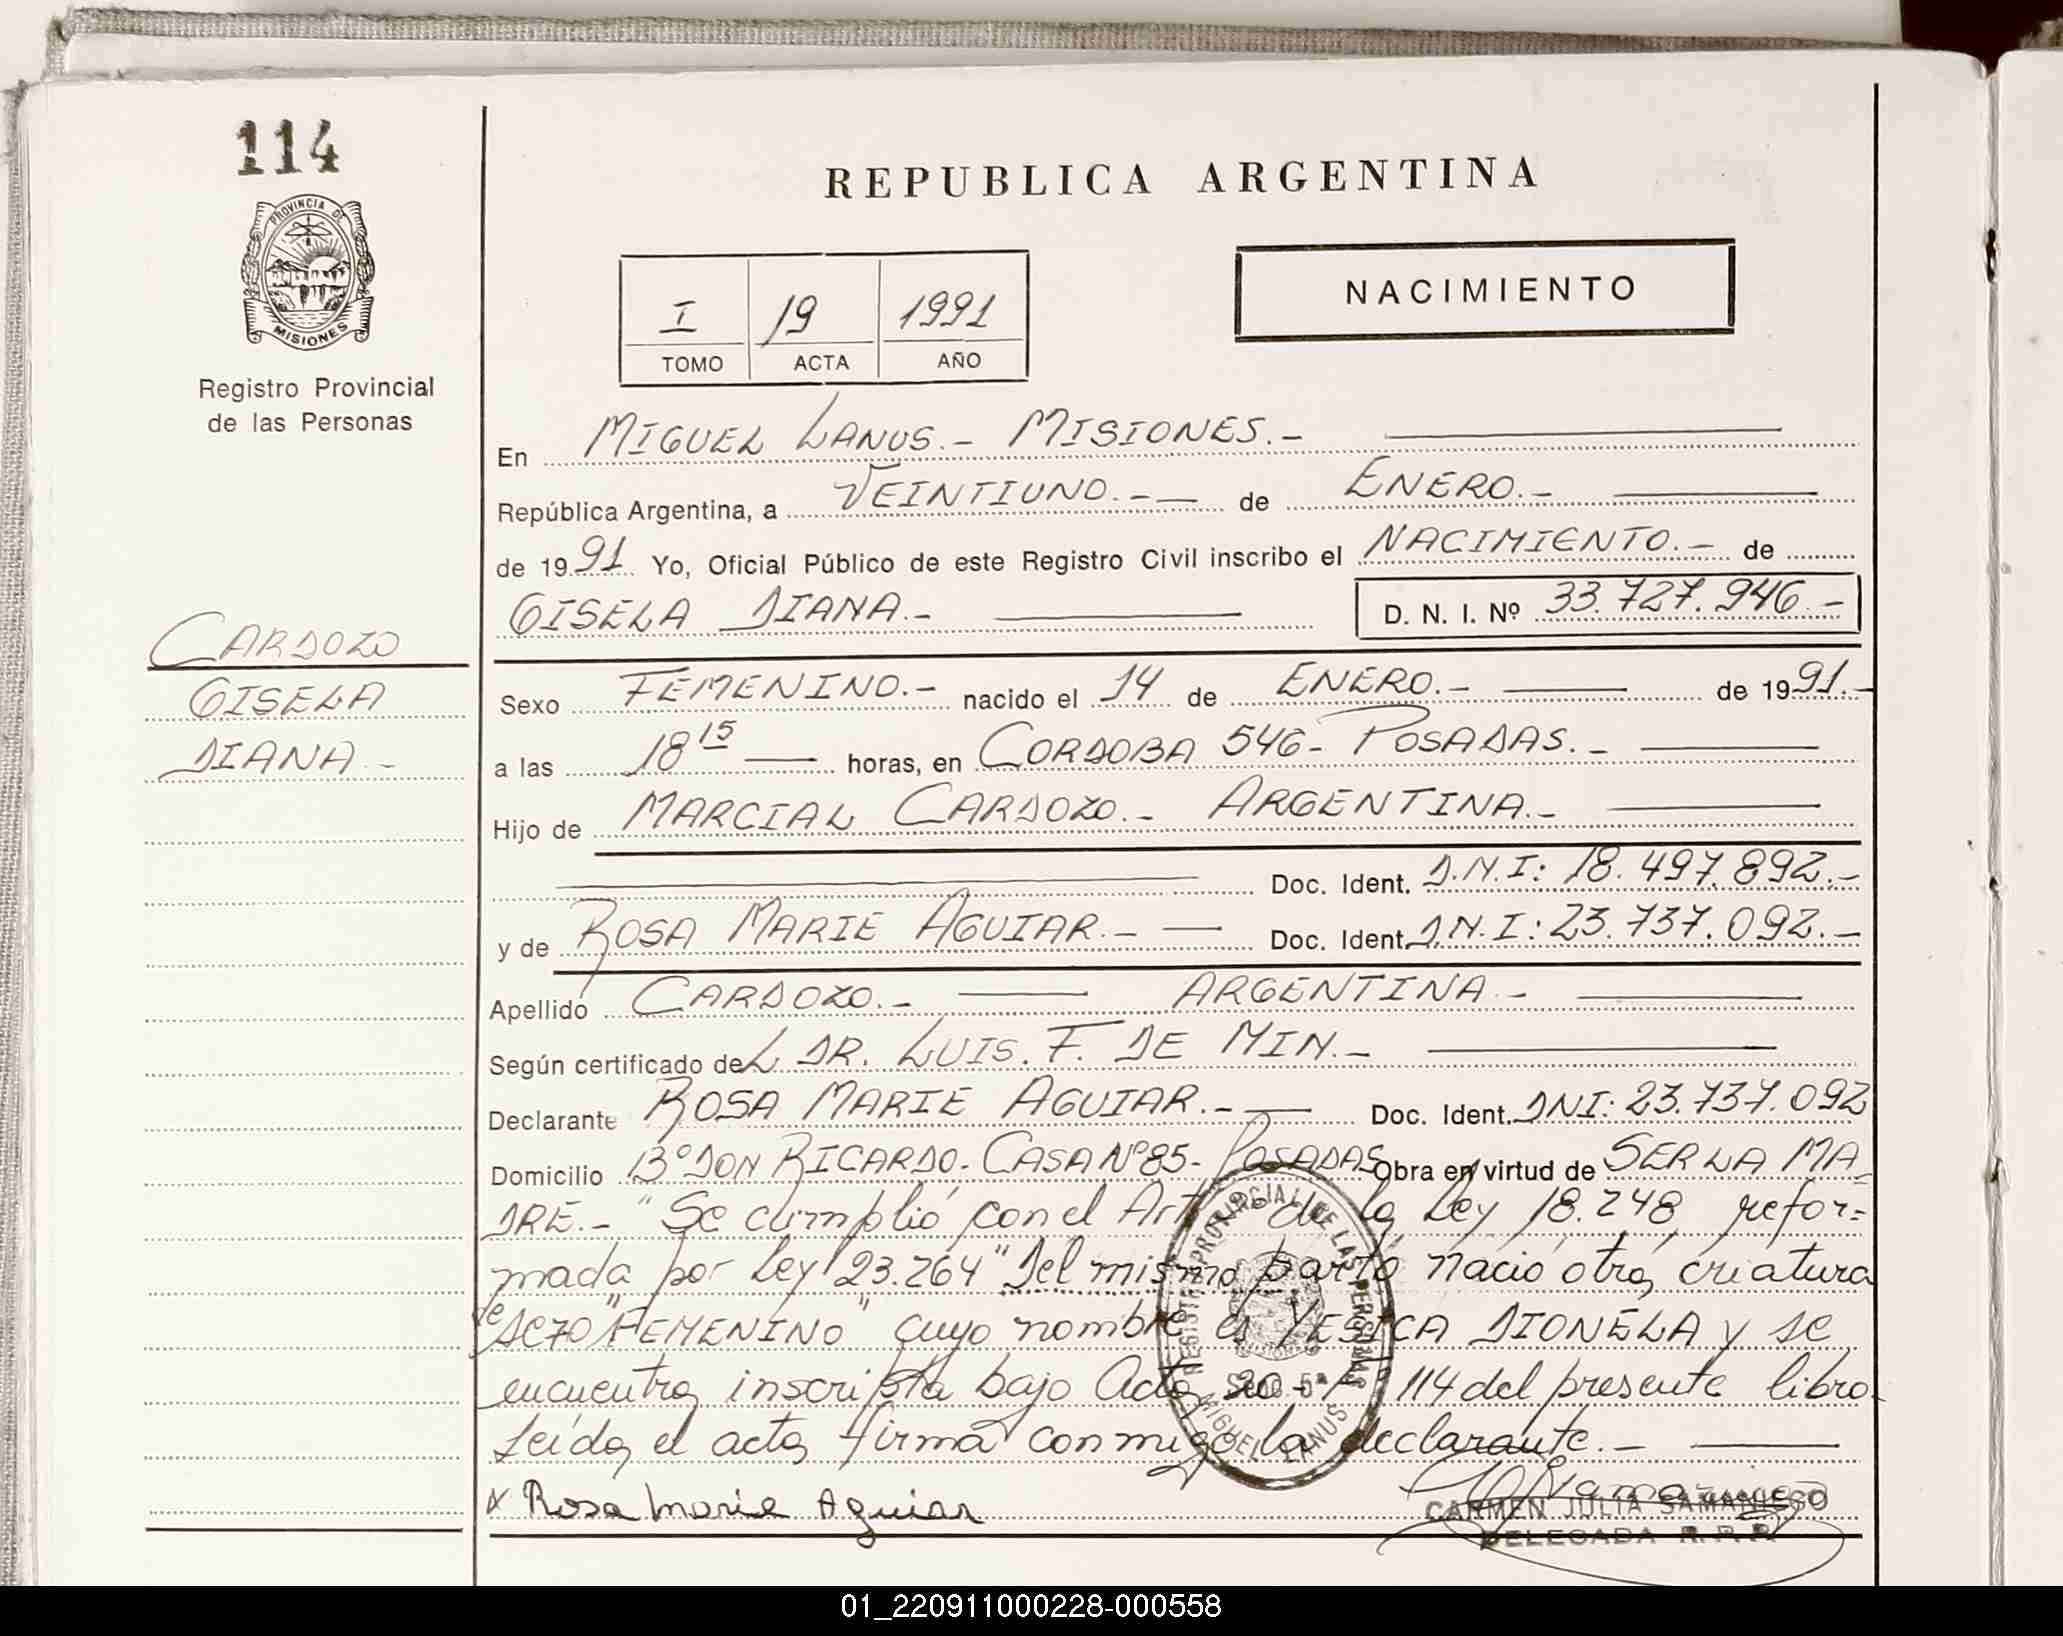 114
PROVINCIA DE
MISIONES
Registro Provincial
de las Personas
REPUBLICA ARGENTINA
I 19 1991
TOMO ACTA AÑO
NACIMIENTO
En MIGUEL LANUS.- MISIONES.-
República Argentina, a VEINTIUNO.- de ENERO.-
de 1991 Yo, Oficial Público de este Registro Civil inscribo el NACIMIENTO.- de
GISELA DIANA.- D. N. I. Nº 33.727.946.-
CARDOZO
GISELA
DIANA.-
Sexo FEMENINO.- nacido el 14 de ENERO.- de 1991.-
a las 18 15 horas, en CORDOBA 546- POSADAS.-
Hijo de MARCIAL CARDOZO.- ARGENTINA.-
Doc. Ident. D.N.I: 18.497.892.-
y de ROSA MARIE AGUIAR.- Doc. Ident. D.N.I: 23.737.092.-
Apellido CARDOZO.- ARGENTINA.-
Según certificado deL DR. LUIS. F. DE MIN.-
Declarante ROSA MARIE AGUIAR.- Doc. Ident. DNI: 23.737.092
Domicilio Bº DON RICARDO. CASA Nº 85- POSADAS Obra en virtud de SER LA MA
DRE.- "Se cumplió con el Art de la Ley 18.248, refor=
mada por Ley 23.264" Del mismo parto nació otra criatura
de sexo "FEMENINO" cuyo nombre es YESICA DIONELA y se
encuentra inscripta bajo Acta 20 - Fº 114 del presente libro.
Leída el acta firma conmigo la declarante.-
REGISTRO PROVINCIAL DE LAS PERSONAS
MISIONES
Secc. 5ª
MIGUEL LANUS
x Rosa Marie Aguiar
CARMEN JULIA SAMANIEGO
DELEGADA R. P. P.
01_220911000228-000558